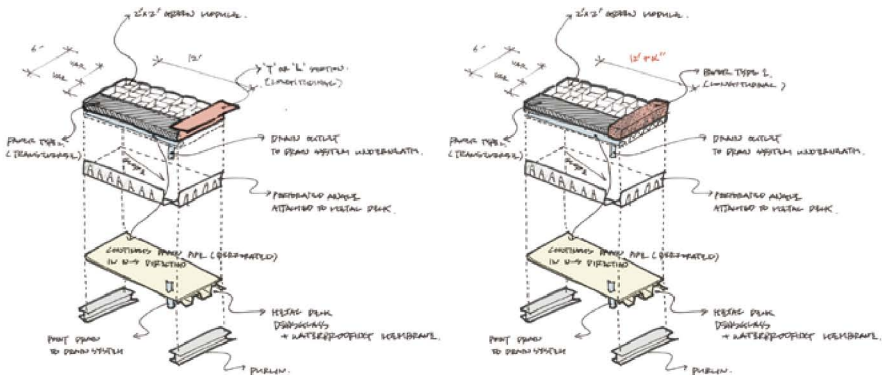 2'x2' GREEN MODULE.
6'
12'
'T' OR 'L' SECTION
(LONGITUDINAL)
PAVER TYPE 2
(TRANSVERSE)
DRAIN OUTLET
TO DRAIN SYSTEM UNDERNEATH.
SLOPE
PERFORATED ANGLE
ATTACHED TO METAL DECK.
CONTINUOUS DRAIN PIPE (PERFORATED)
IN N-S DIRECTION
METAL DECK
DENSGLASS
+ WATERPROOFING MEMBRANE.
POINT DRAIN
TO DRAIN SYSTEM
PURLIN.
2'x2' GREEN MODULE.
6'
PAVER TYPE 1.
(LONGITUDINAL)
PAVER TYPE 2
(TRANSVERSE)
DRAIN OUTLET
TO DRAIN SYSTEM UNDERNEATH.
SLOPE
PERFORATED ANGLE
ATTACHED TO METAL DECK.
CONTINUOUS DRAIN PIPE (PERFORATED)
IN N-S DIRECTION
METAL DECK
DENSGLASS
+ WATERPROOFING MEMBRANE.
POINT DRAIN
TO DRAIN SYSTEM
PURLIN.